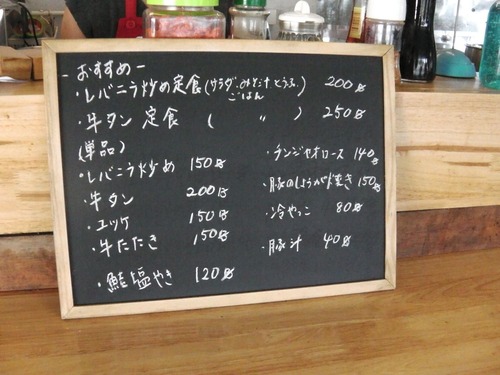 -おすすめ-
・レバニラ炒め定食(サラダ・みそ汁・とうふ・ごはん) 200฿
・牛タン定食 ( 〃 ) 250฿
(単品)
・レバニラ炒め 150฿
・牛タン 200฿
・ユッケ 150฿
・牛たたき 150฿
・鮭塩やき 120฿
・チンジャオロース 140฿
・豚のしょうが焼き 150฿
・冷やっこ 80฿
・豚汁 40฿